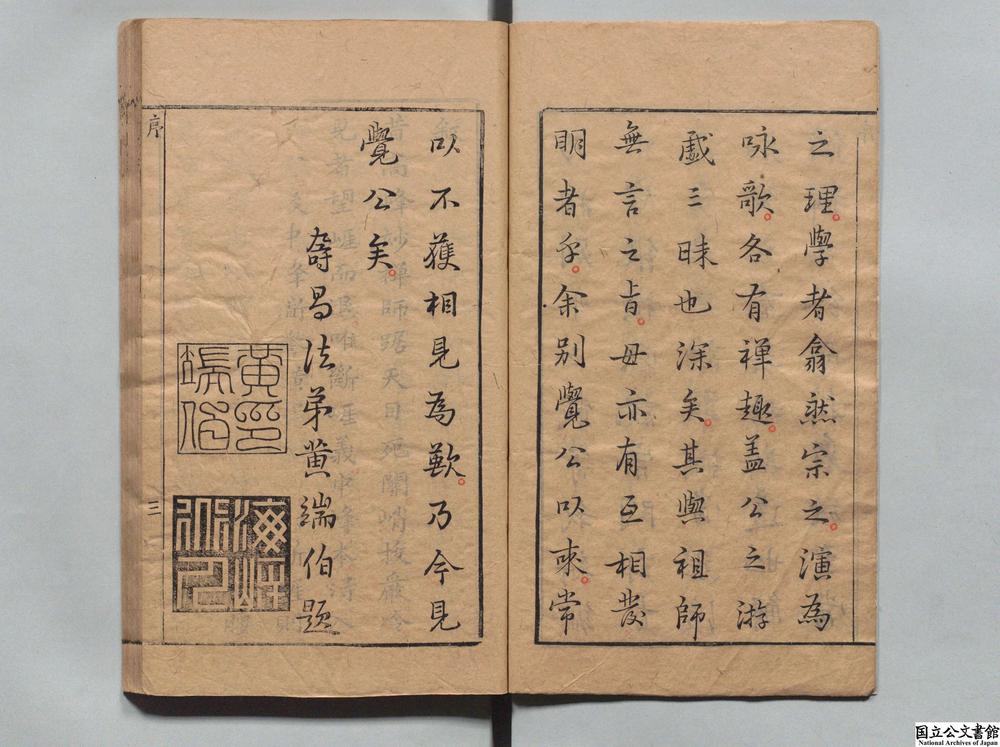 之理學者翕然宗之演為
咏歌各有禅趣盖公之游
戲三昧也深矣其與祖師
無言之旨毋亦有互相發
明者乎余别覺公以來常
以不獲相見為歎乃今見
覺公矣
法弟黄端伯題
黄端伯印
海岸
序
三
国立公文書館
National Archives of Japan